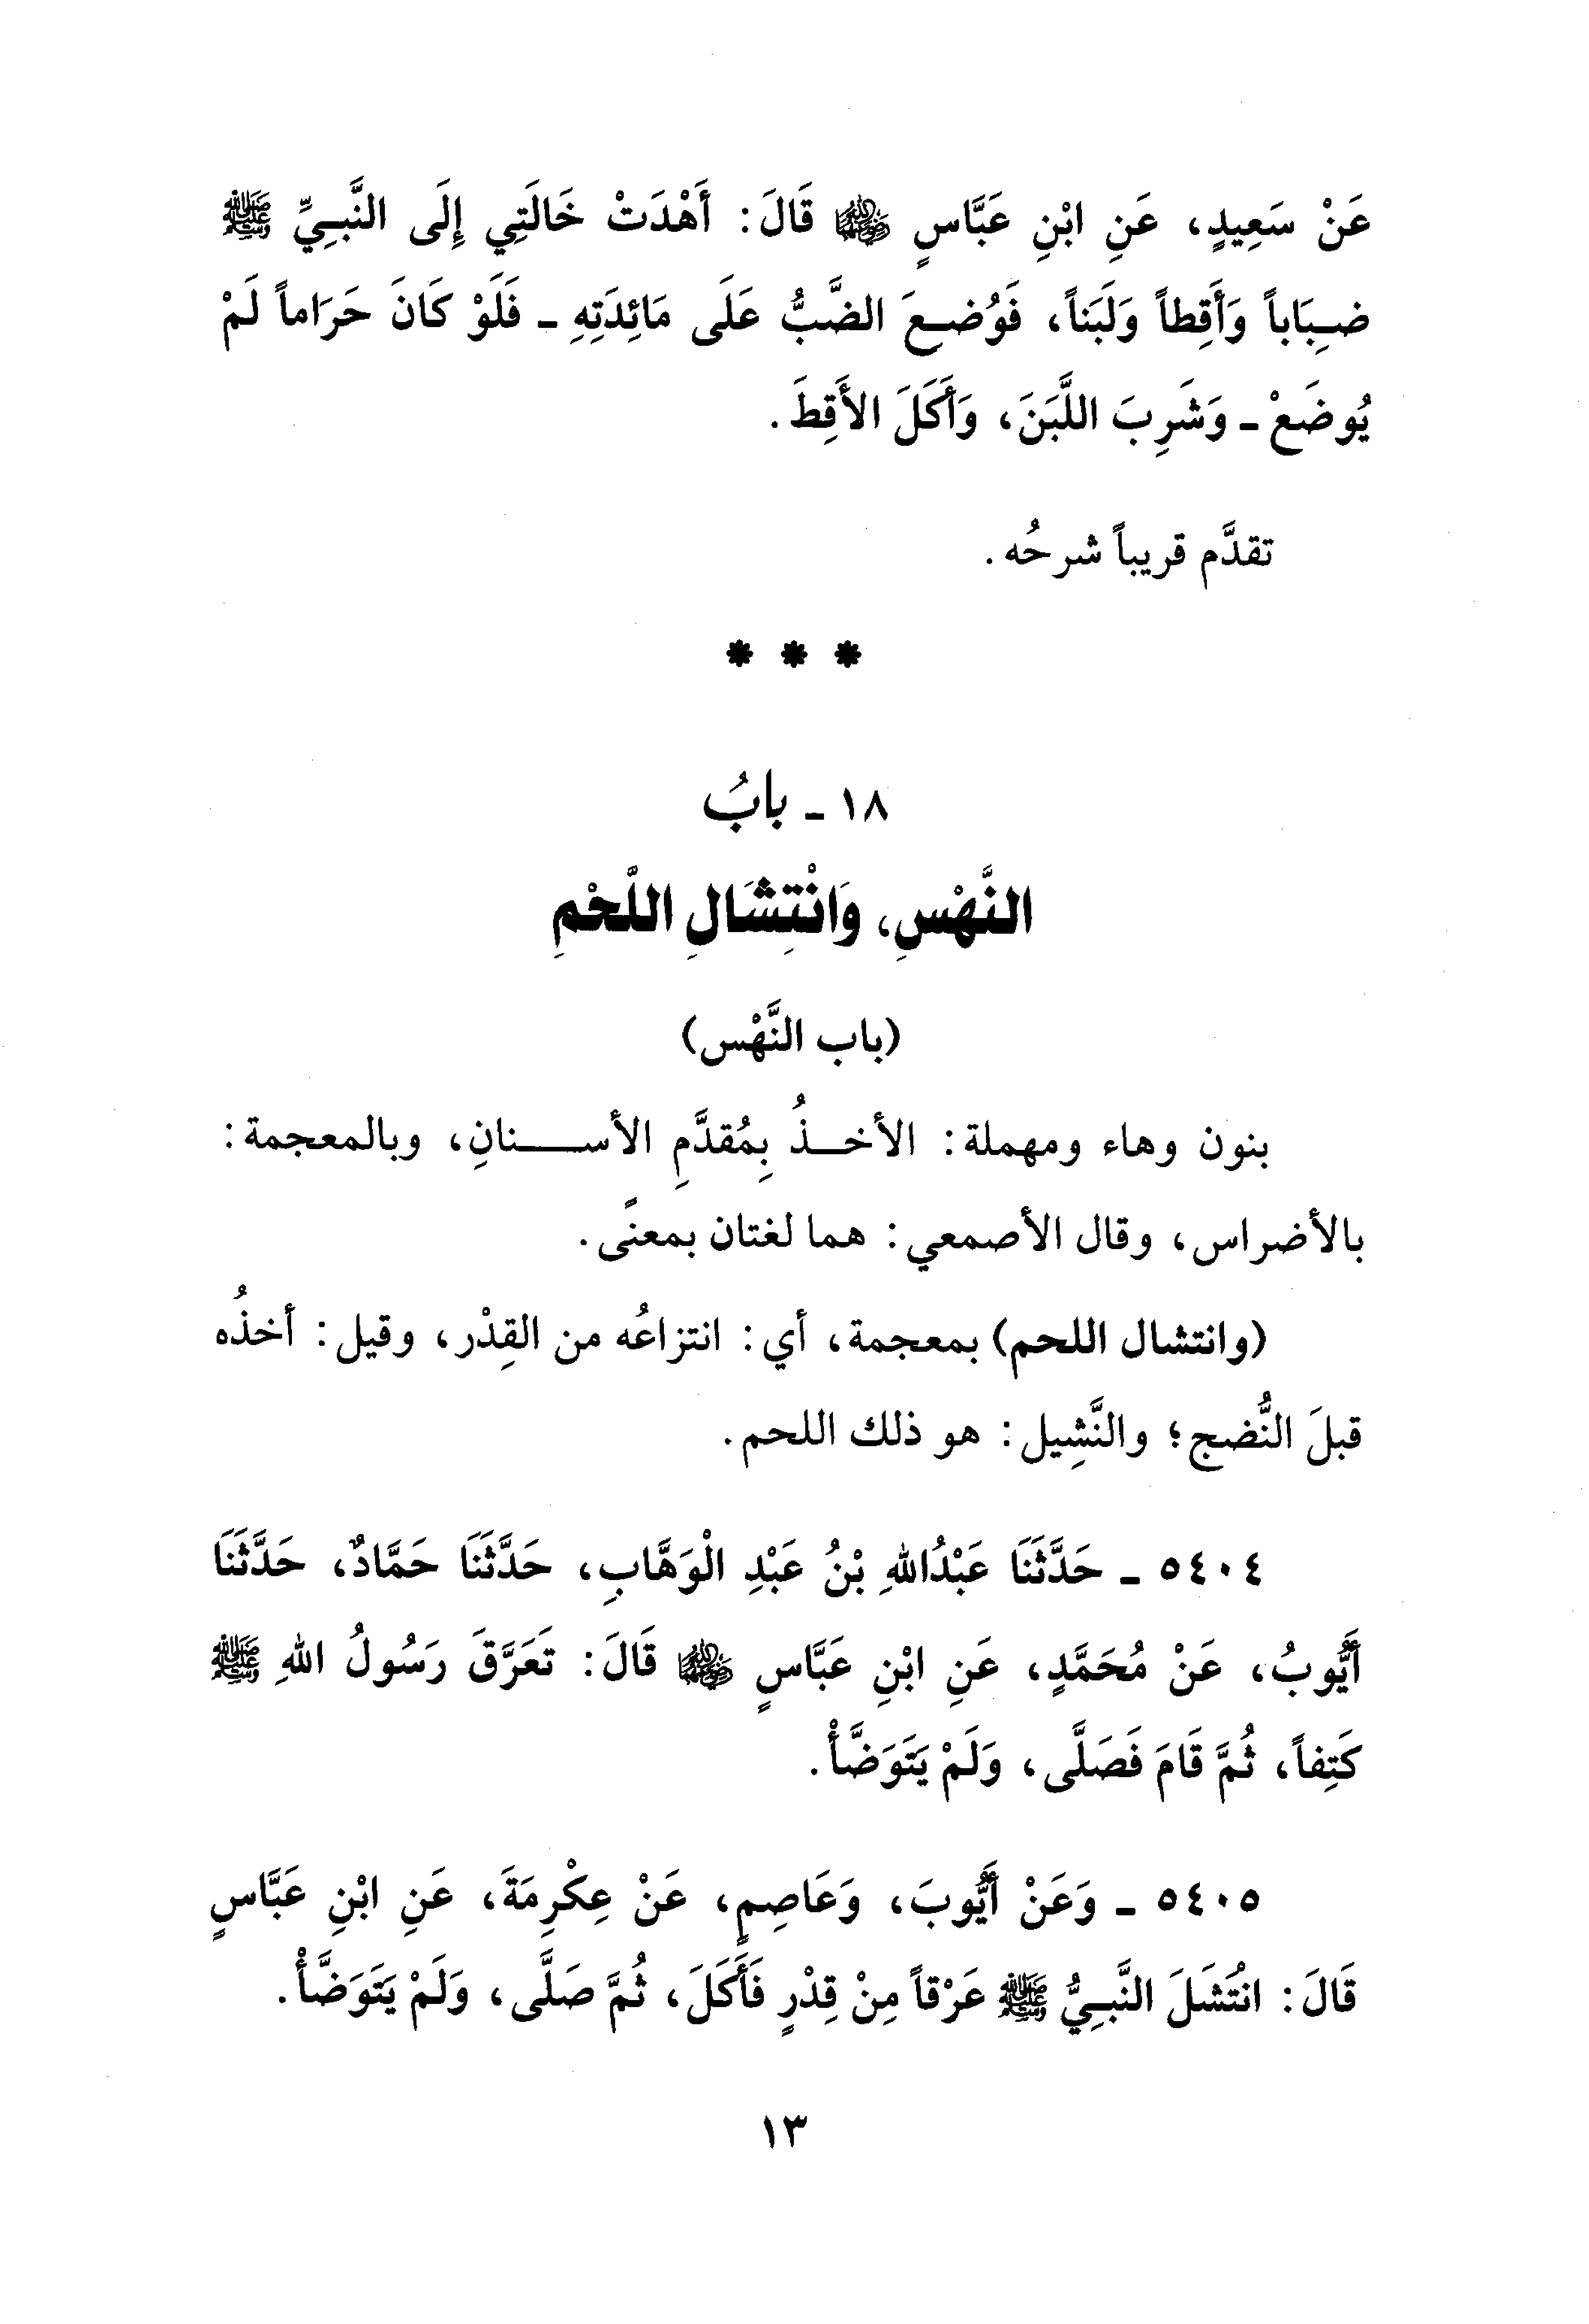 عَنْ سَعِيدٍ، عَنِ ابْنِ عَبَّاسٍ ﵄ قَالَ: أَهْدَتْ خَالَتِي إِلَى النَّبِيِّ ﷺ
ضِبَاباً وَأَقِطاً وَلَبَناً، فَوُضِعَ الضَّبُّ عَلَى مَائِدَتِهِ ـ فَلَوْ كَانَ حَرَاماً لَمْ
يُوضَعْ ـ وَشَرِبَ اللَّبَنَ، وَأَكَلَ الأَقِطَ.
تقدَّم قريباً شرحُه.
* * *
١٨ ـ بابُ
النَّهْسِ، وَانْتِشَالِ اللَّحْمِ
(باب النَّهْس)
بنون وهاء ومهملة: الأخـذُ بِمُقدَّمِ الأســـنانِ، وبالمعجمة:
بالأضراس، وقال الأصمعي: هما لغتان بمعنًى.
(وانتشال اللحم) بمعجمة، أي: انتزاعُه من القِدْر، وقيل: أخذُه
قبلَ النُّضج؛ والنَّشِيل: هو ذلك اللحم.
٥٤٠٤ ـ حَدَّثَنَا عَبْدُاللهِ بْنُ عَبْدِ الْوَهَّابِ، حَدَّثَنَا حَمَّادٌ، حَدَّثَنَا
أَيُّوبُ، عَنْ مُحَمَّدٍ، عَنِ ابْنِ عَبَّاسٍ ﵄ قَالَ: تَعَرَّقَ رَسُولُ اللهِ ﷺ
كَتِفاً، ثُمَّ قَامَ فَصَلَّى، وَلَمْ يَتَوَضَّأْ.
٥٤٠٥ ـ وَعَنْ أَيُّوبَ، وَعَاصِمٍ، عَنْ عِكْرِمَةَ، عَنِ ابْنِ عَبَّاسٍ
قَالَ: انْتَشَلَ النَّبِيُّ ﷺ عَرْقاً مِنْ قِدْرٍ فَأَكَلَ، ثُمَّ صَلَّى، وَلَمْ يَتَوَضَّأْ.
١٣